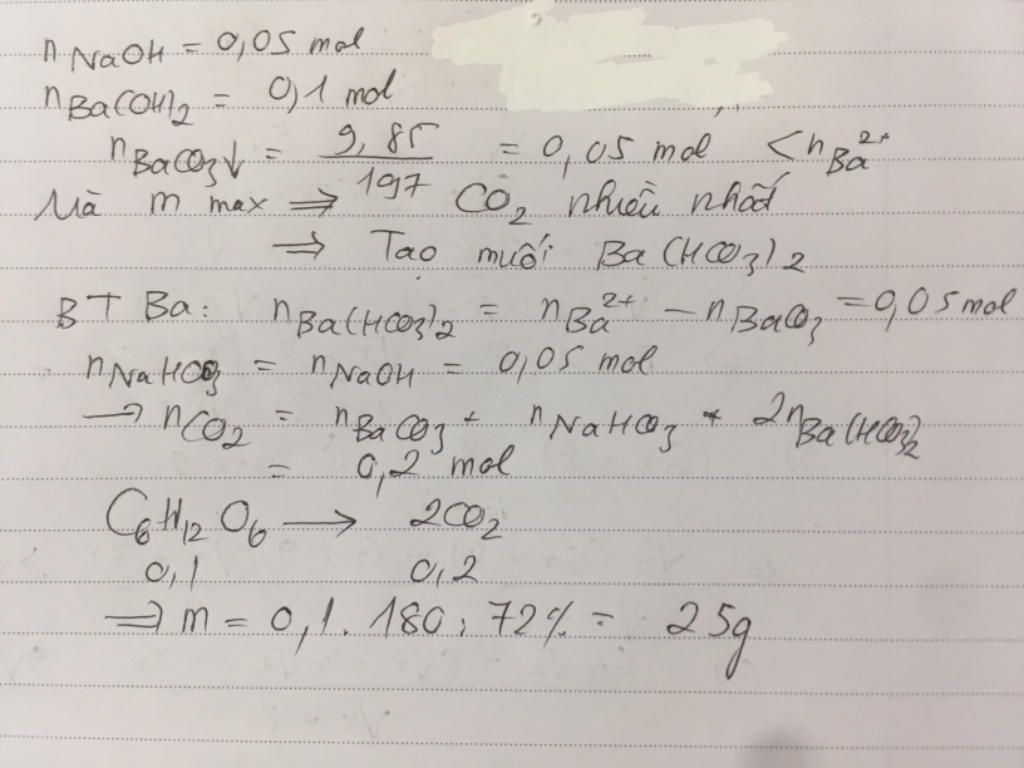 nNaOH = 0,05 mol
nBa(OH)2 = 0,1 mol
nBaCO3↓ = 9,85/197 = 0,05 mol < nBa2+
Mà m max ⇒ CO2 nhiều nhất
⇒ Tạo muối Ba(HCO3)2
BT Ba: nBa(HCO3)2 = nBa2+ - nBaCO3 = 0,05 mol
nNaHCO3 = nNaOH = 0,05 mol
→ nCO2 = nBaCO3 + nNaHCO3 + 2nBa(HCO3)2
= 0,2 mol
C6H12O6 → 2CO2
0,1 0,2
⇒ m = 0,1. 180 : 72% = 25g